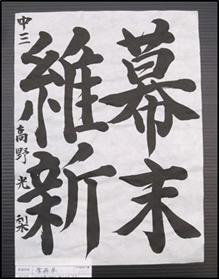 幕末
維新
中三 高野光梨